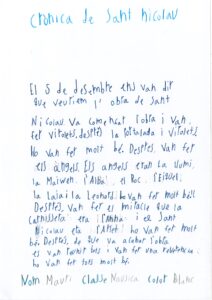 cronica de sant Nicolau
El 5 de desembre ens van dir
que veuriem l'obra de sant
Nicolau. Va començat l'obra i van
fer vitolets, després la portalada i vitolets.
Ho van fer molt bé. Després, van fer
els àngels. Els àngels eren la Noemí,
la Maiwen, l'Alba, el Roc, l'Ezquiel,
la Laia i la Leonor. Ho van fer molt bé.
Després, van fer el miracle que la
carnissera era l'Anna i el sant
Nicolau era l'Albert. Ho van fer molt
bé. Després, de que va acabar l'obra
es van tornar tots i van fer una reverència.
ho van fer tots molt bé.
Nom Maurici Classe Nausica Color Blanc